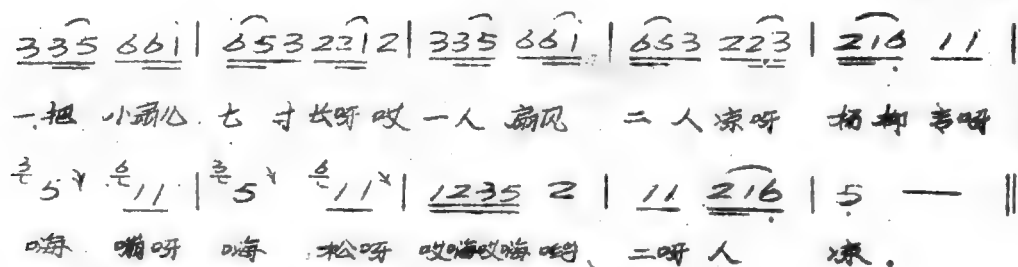 3 3 5 6 6 i | 6 5 3 2 2 1 2 | 3 3 5 6 6 i | 6 5 3 2 2 3 | 2 1 6 1 1 |
一把 小扇儿 七 寸 长呀 哎 一人 扇风 二 人 凉呀 杨柳 青呀
3 5 6 1 1 | 3 5 6 1 1 | 1 2 3 5 2 | 1 1 2 1 6 | 5 — ‖
嗨 嘣呀 嗨 松呀 哎嗨哎嗨哟 二呀 人 凉.